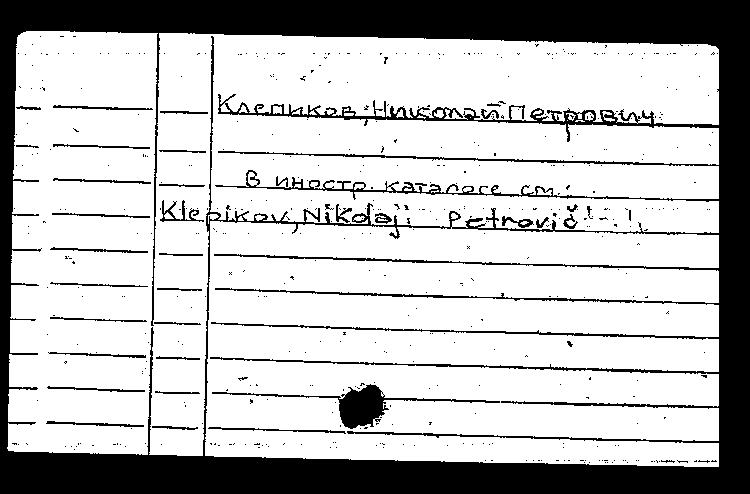 Клепиков, Николай Петрович
В иностр. каталоге см.:
Klepikov, Nikolaj Petrovič